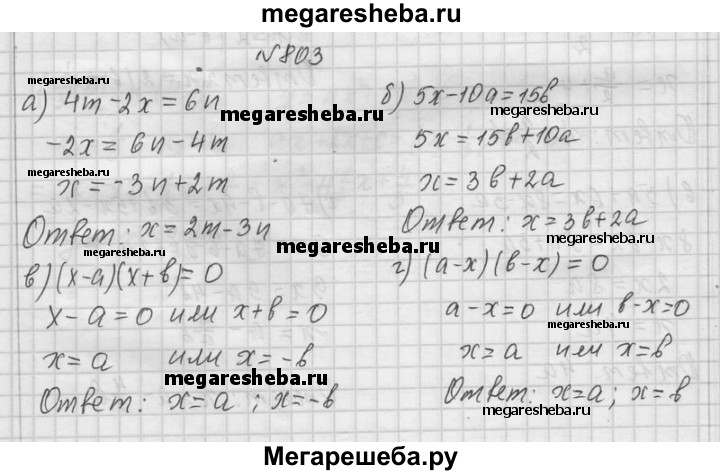 megaresheba.ru
№803
megaresheba.ru
megaresheba.ru
а) 4m - 2x = 6n
megaresheba.ru
-2x = 6n - 4m
x = -3n + 2m
Ответ: x = 2m - 3n
б) 5x - 10a = 15b
megaresheba.ru
5x = 15b + 10a
x = 3b + 2a
Ответ: x = 3b + 2a
megaresheba.ru
в) (x-a)(x+b) = 0
x - a = 0 или x + b = 0
x = a или x = -b
megaresheba.ru
Ответ: x = a ; x = -b
г) (a-x)(b-x) = 0
a - x = 0 или b - x = 0
megaresheba.ru
x = a или x = b
Ответ: x = a ; x = b
megaresheba.ru
Мегарешеба.ру